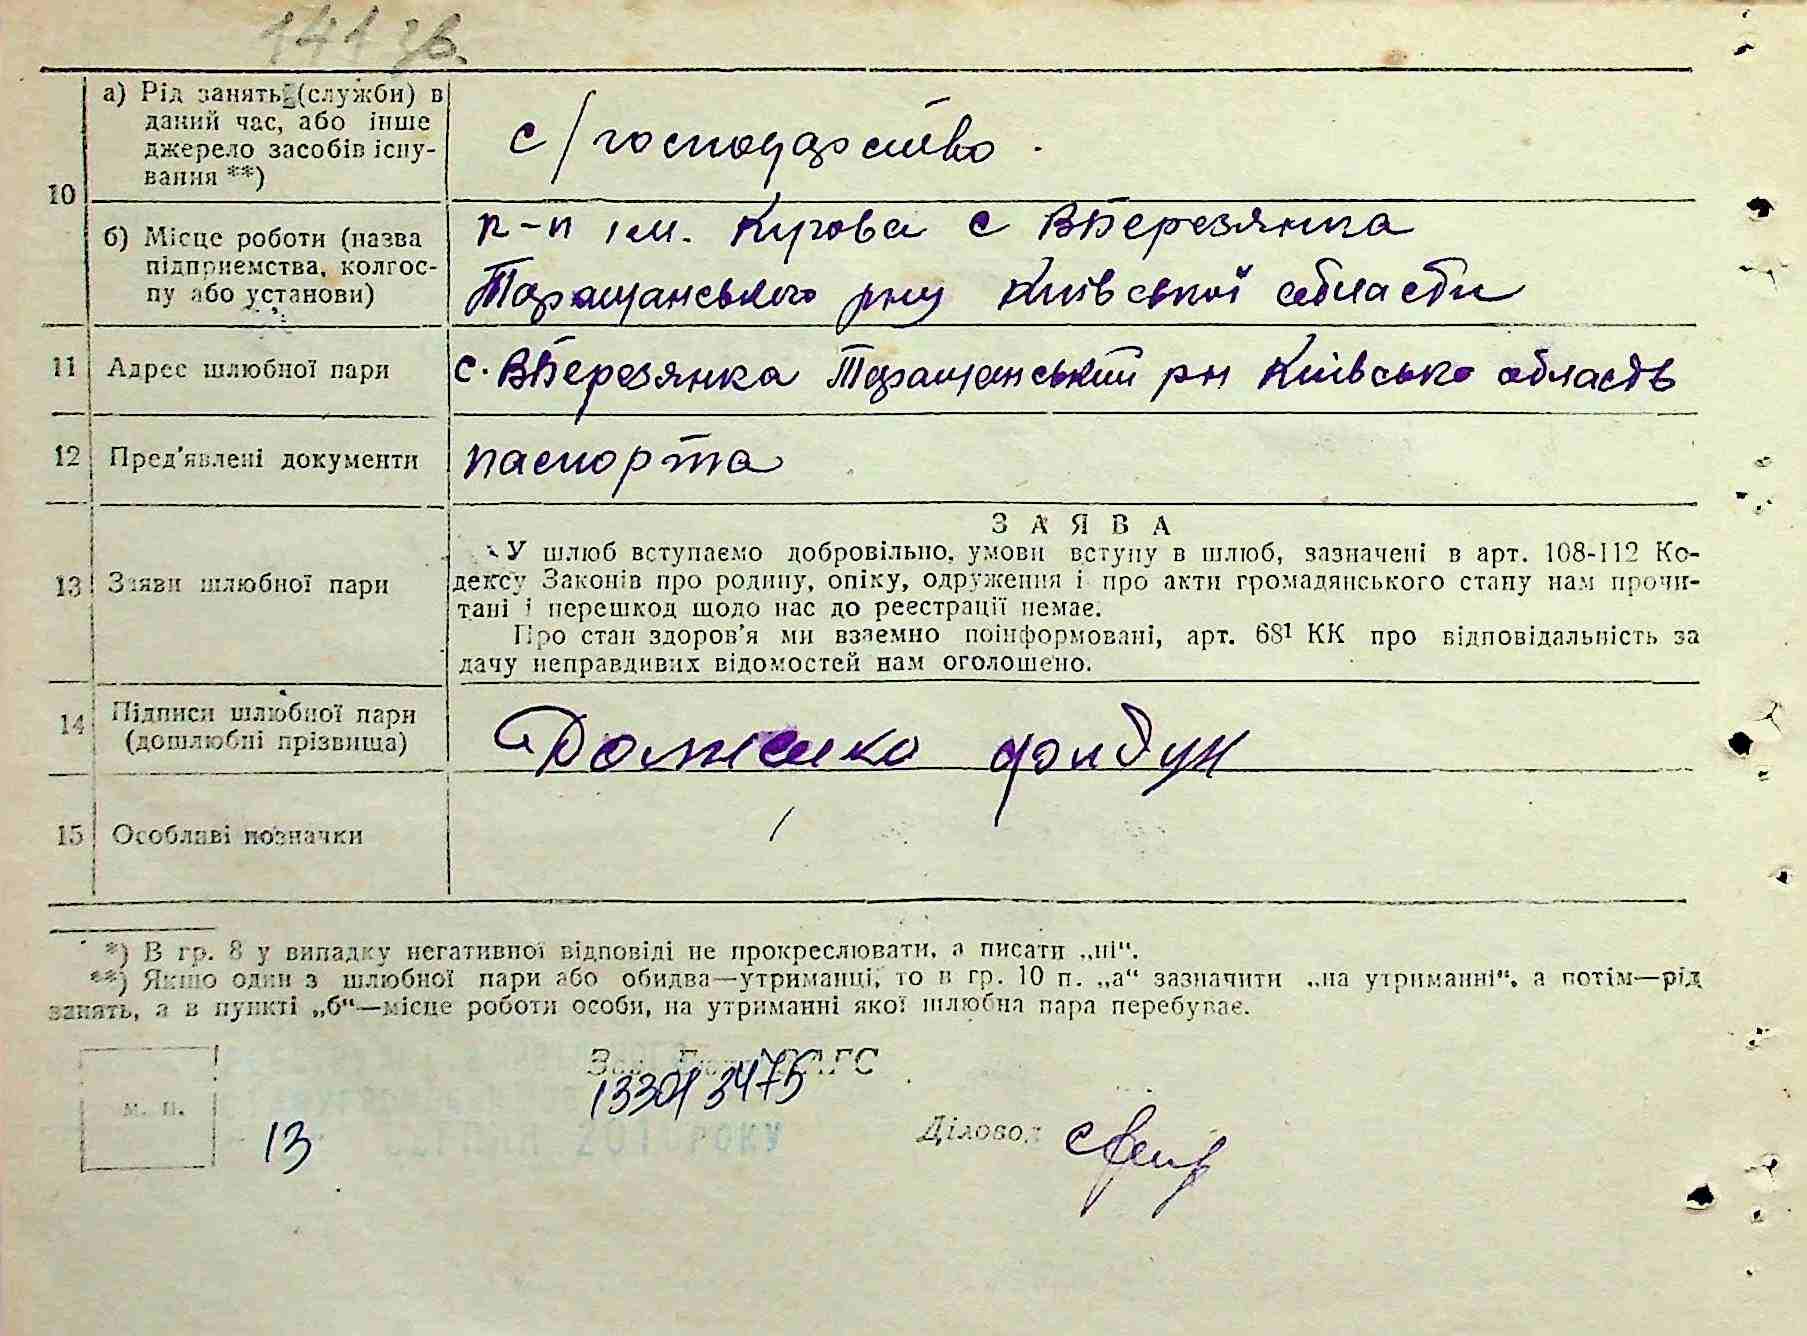 141 зв.
10
а) Рід занять (служби) в
даний час, або інше
джерело засобів існу-
вання **)
с/господарство
б) Місце роботи (назва
підприємства, колгос-
пу або установи)
к-п ім. Кірова с ВБерезянка
Таращанського рну Київської области
11 Адрес шлюбної пари
с. ВБерезянка Таращанський рн Київсько область
12 Пред'явлені документи
паспорта
13 Заяви шлюбної пари
ЗАЯВА
У шлюб вступаємо добровільно, умови вступу в шлюб, зазначені в арт. 108-112 Ко-
дексу Законів про родину, опіку, одруження і про акти громадянського стану нам прочи-
тані і перешкод щодо нас до реєстрації немає.
Про стан здоров'я ми взаємно поінформовані, арт. 68¹ КК про відповідальність за
дачу неправдивих відомостей нам оголошено.
14 Підписи шлюбної пари
(дошлюбні прізвища)
15 Особливі позначки
*) В гр. 8 у випадку негативної відповіді не прокреслювати, а писати „ні".
**) Якщо один з шлюбної пари або обидва—утриманці, то в гр. 10 п. „а" зазначити „на утриманні", а потім—рід
занять, а в пункті „б"—місце роботи особи, на утриманні якої шлюбна пара перебуває.
Зав. Бюро ЗАГС
13301 3475
м. п.
13
Діловод